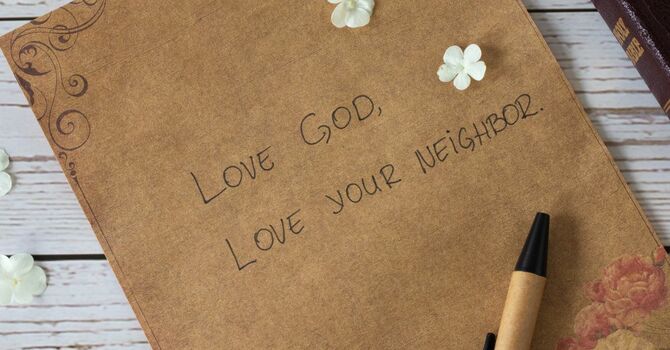 Love God,
Love your neighbor.